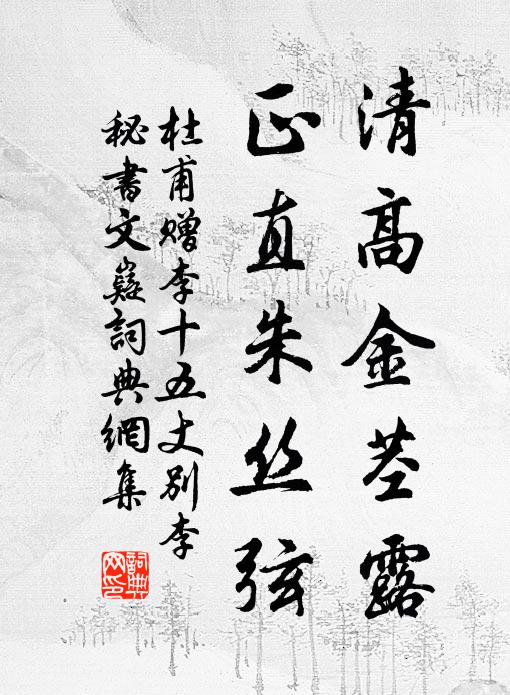 清高金茎露
正直朱丝弦
杜甫赠李十五丈别李
秘書文嶷詞典網集
詞典網印